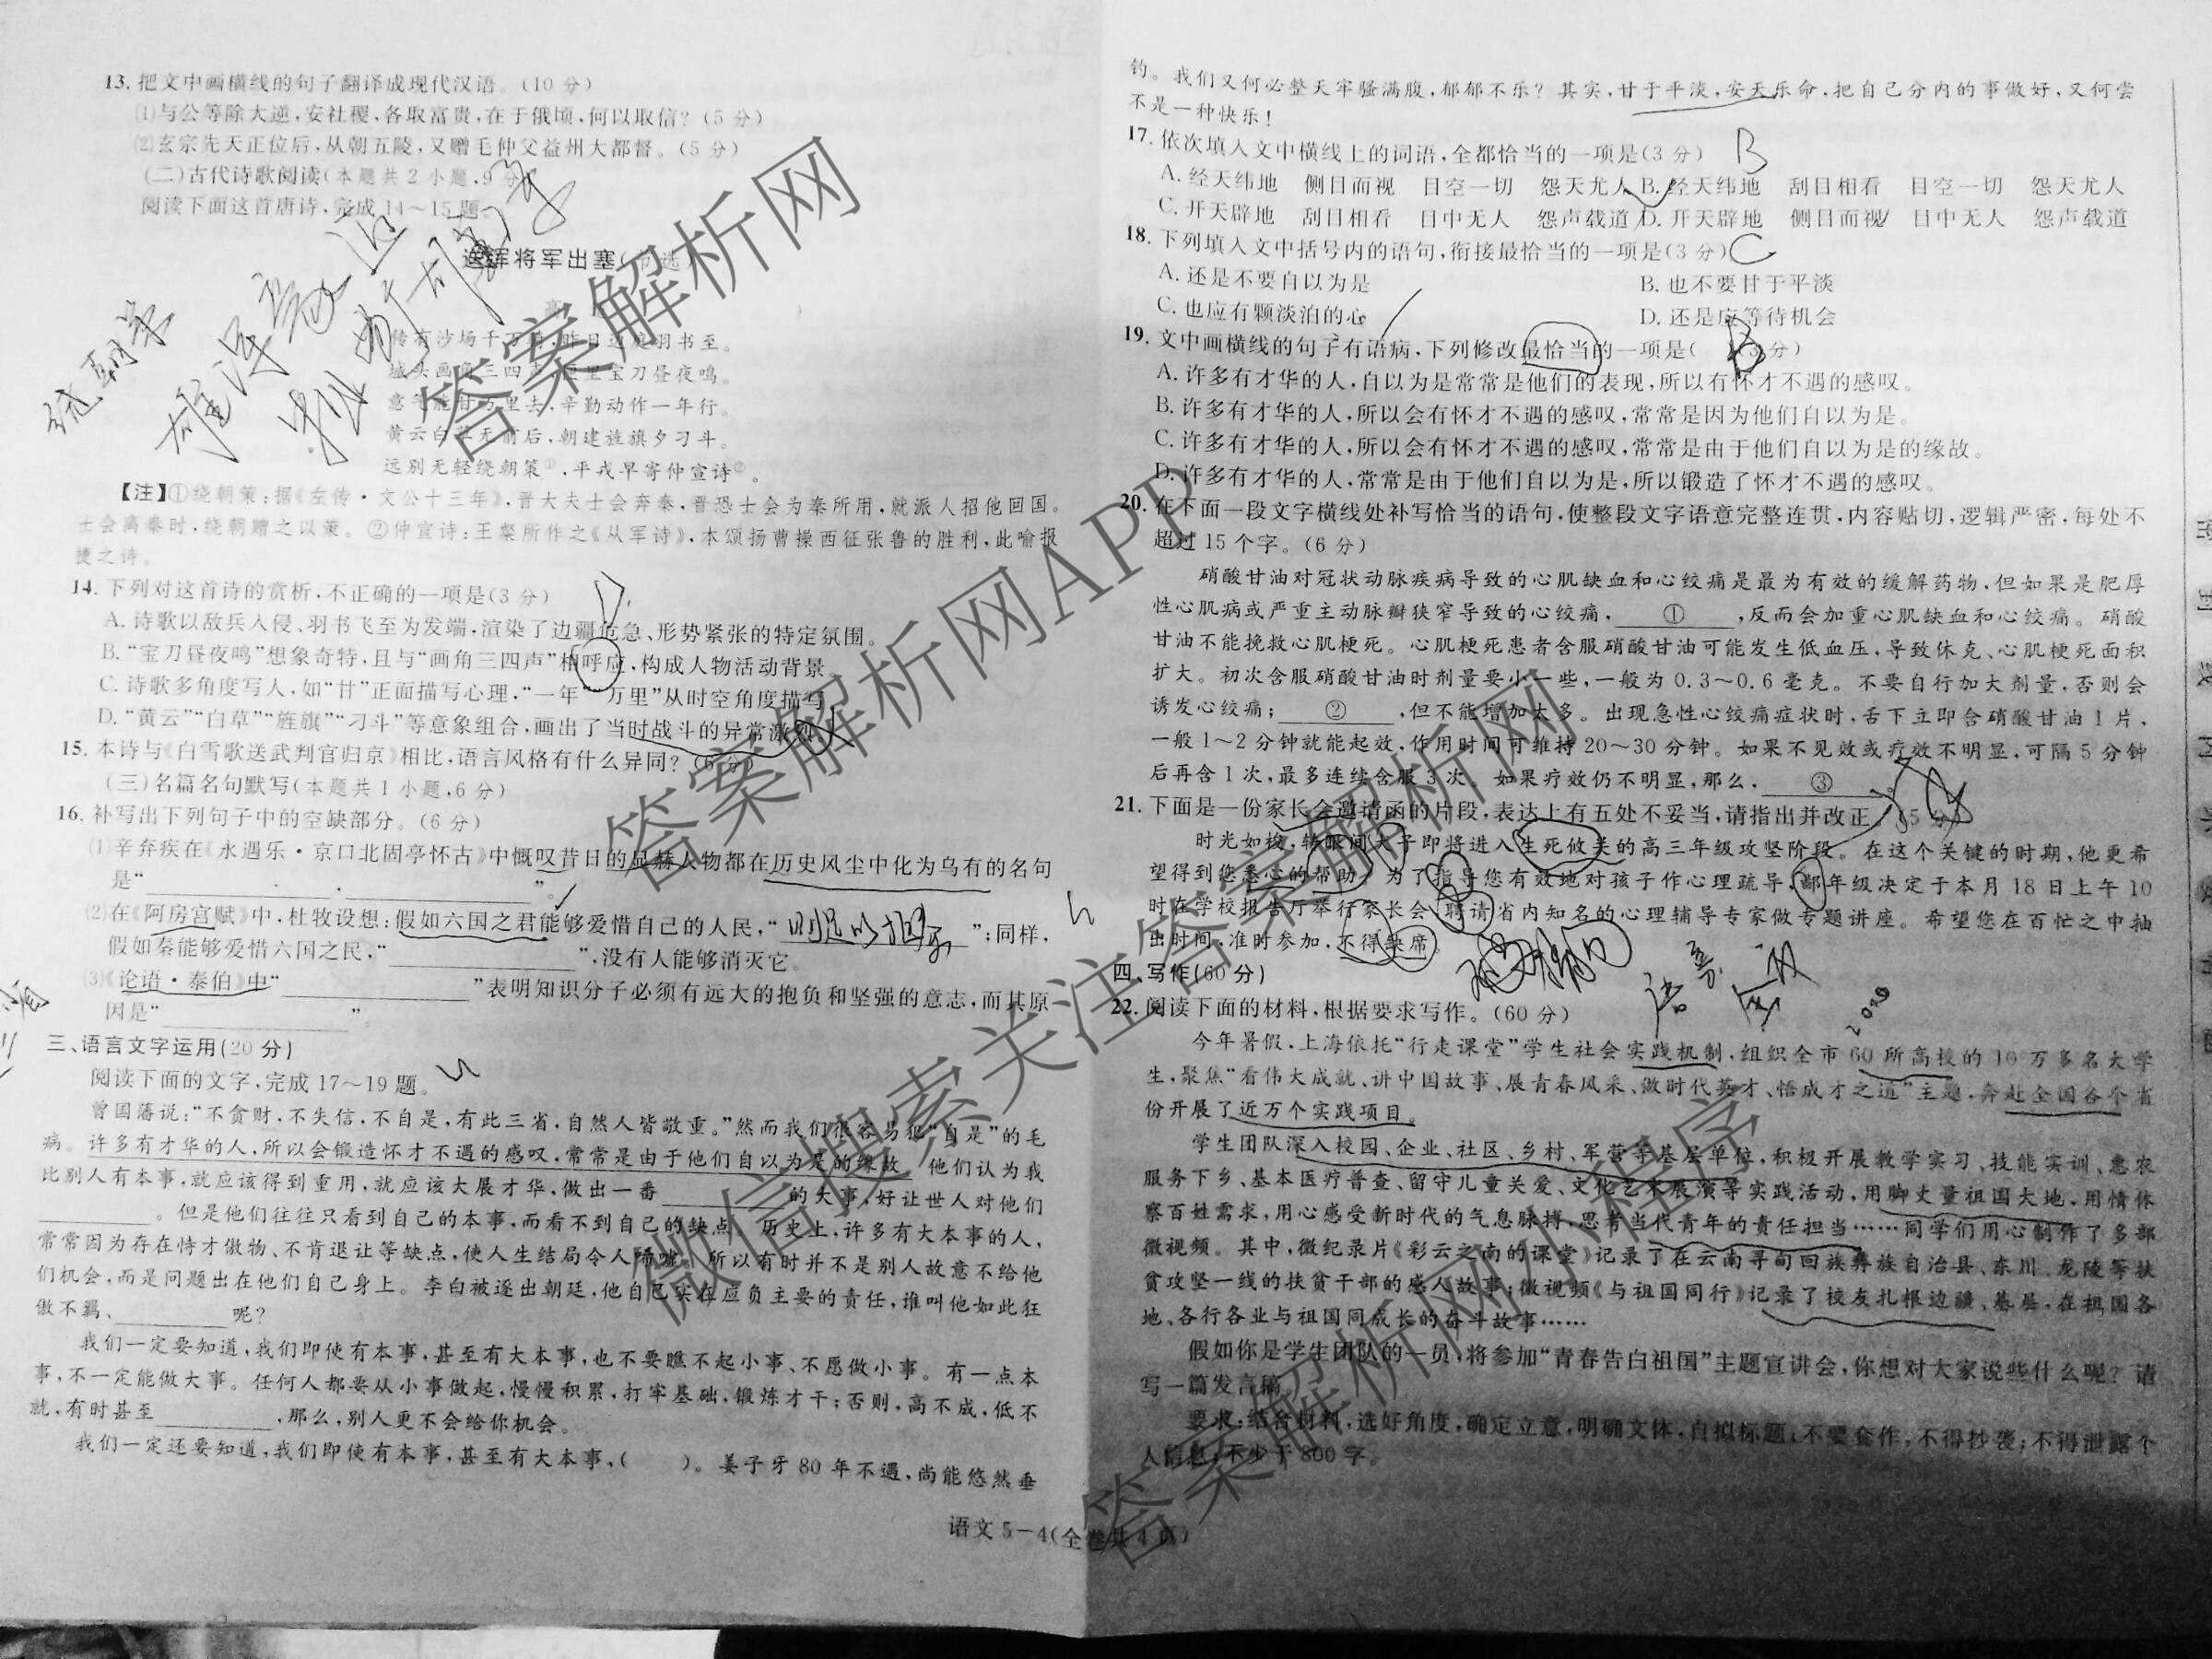 13. 把文中画横线的句子翻译成现代汉语。(10 分)
⑴与公等除大逆,安社稷,各取富贵,在于俄顷,何以取信?(5 分)
⑵玄宗先天正位后,从朝五陵,又赠毛仲父益州大都督。(5 分)
(二)古代诗歌阅读(本题共 2 小题,9 分
阅读下面这首唐诗,完成 14～15 题。
送浑将军出塞(节选)
传有沙场千万骑,昨日边庭羽书至。
城头画角三四声,匣里宝刀昼夜鸣。
意气能甘万里去,辛勤动作一年行。
黄云白草无前后,朝建旌旗夕刁斗。
远别无轻绕朝策①,平戎早寄仲宣诗②。
【注】①绕朝策:据《左传·文公十三年》,晋大夫士会奔秦,晋恐士会为秦所用,就派人招他回国。
士会离秦时,绕朝赠之以策。②仲宣诗:王粲所作之《从军诗》,本颂扬曹操西征张鲁的胜利,此喻报
捷之诗。
14. 下列对这首诗的赏析,不正确的一项是(3 分)
A. 诗歌以敌兵入侵、羽书飞至为发端,渲染了边疆危急、形势紧张的特定氛围。
B. “宝刀昼夜鸣”想象奇特,且与“画角三四声”相呼应,构成人物活动背景。
C. 诗歌多角度写人,如“甘”正面描写心理,“一年”“万里”从时空角度描写
D. “黄云”“白草”“旌旗”“刁斗”等意象组合,画出了当时战斗的异常激烈
15. 本诗与《白雪歌送武判官归京》相比,语言风格有什么异同?(6 分)
(三)名篇名句默写(本题共 1 小题,6 分)
16. 补写出下列句子中的空缺部分。(6 分)
⑴辛弃疾在《永遇乐·京口北固亭怀古》中慨叹昔日的显赫人物都在历史风尘中化为乌有的名句
是“                ”。
⑵在《阿房宫赋》中,杜牧设想:假如六国之君能够爱惜自己的人民,“          ”;同样,
假如秦能够爱惜六国之民,“          ”,没有人能够消灭它。
⑶《论语·泰伯》中“          ”表明知识分子必须有远大的抱负和坚强的意志,而其原
因是“          ”。
三、语言文字运用(20 分)
阅读下面的文字,完成 17～19 题。
曾国藩说:“不贪财,不失信,不自是,有此三省,自然人皆敬重。”然而我们很容易犯“自是”的毛
病。许多有才华的人,所以会锻造怀才不遇的感叹,常常是由于他们自以为是的缘故。他们认为我
比别人有本事,就应该得到重用,就应该大展才华,做出一番________的大事,好让世人对他们
________。但是他们往往只看到自己的本事,而看不到自己的缺点。历史上,许多有大本事的人,
常常因为存在恃才傲物、不肯退让等缺点,使人生结局令人唏嘘。所以有时并不是别人故意不给他
们机会,而是问题出在他们自己身上。李白被逐出朝廷,他自己实在应负主要的责任,谁叫他如此狂
傲不羁、________呢?
我们一定要知道,我们即使有本事,甚至有大本事,也不要瞧不起小事、不愿做小事。有一点本
事,不一定能做大事。任何人都要从小事做起,慢慢积累,打牢基础,锻炼才干;否则,高不成,低不
就,有时甚至________,那么,别人更不会给你机会。
我们一定还要知道,我们即使有本事,甚至有大本事,(    )。姜子牙 80 年不遇,尚能悠然垂
语文 5－4(全卷共 4 页)
钓。我们又何必整天牢骚满腹,郁郁不乐?其实,甘于平淡,安天乐命,把自己分内的事做好,又何尝
不是一种快乐!
17. 依次填入文中横线上的词语,全都恰当的一项是(3 分) B
A. 经天纬地 侧目而视 目空一切 怨天尤人 B. 经天纬地 刮目相看 目空一切 怨天尤人
C. 开天辟地 刮目相看 目中无人 怨声载道 D. 开天辟地 侧目而视 目中无人 怨声载道
18. 下列填入文中括号内的语句,衔接最恰当的一项是(3 分) C
A. 还是不要自以为是 B. 也不要甘于平淡
C. 也应有颗淡泊的心 D. 还是应等待机会
19. 文中画横线的句子有语病,下列修改最恰当的一项是(3 分) B
A. 许多有才华的人,自以为是常常是他们的表现,所以有怀才不遇的感叹。
B. 许多有才华的人,所以会有怀才不遇的感叹,常常是因为他们自以为是。
C. 许多有才华的人,所以会有怀才不遇的感叹,常常是由于他们自以为是的缘故。
D. 许多有才华的人,常常是由于他们自以为是,所以锻造了怀才不遇的感叹。
20. 在下面一段文字横线处补写恰当的语句,使整段文字语意完整连贯,内容贴切,逻辑严密,每处不
超过 15 个字。(6 分)
硝酸甘油对冠状动脉疾病导致的心肌缺血和心绞痛是最为有效的缓解药物,但如果是肥厚
性心肌病或严重主动脉瓣狭窄导致的心绞痛,____①____,反而会加重心肌缺血和心绞痛。硝酸
甘油不能挽救心肌梗死。心肌梗死患者含服硝酸甘油可能发生低血压,导致休克、心肌梗死面积
扩大。初次含服硝酸甘油时剂量要小一些,一般为 0.3～0.6 毫克。不要自行加大剂量,否则会
诱发心绞痛;____②____,但不能增加太多。出现急性心绞痛症状时,舌下立即含硝酸甘油 1 片,
一般 1～2 分钟就能起效,作用时间可维持 20～30 分钟。如果不见效或疗效不明显,可隔 5 分钟
后再含 1 次,最多连续含服 3 次。如果疗效仍不明显,那么,____③____
21. 下面是一份家长会邀请函的片段,表达上有五处不妥当,请指出并改正。(5 分)
时光如梭,转眼间犬子即将进入生死攸关的高三年级攻坚阶段。在这个关键的时期,他更希
望得到您悉心的帮助。为了指导您有效地对孩子作心理疏导,鄙年级决定于本月 18 日上午 10
时在学校报告厅举行家长会,聘请省内知名的心理辅导专家做专题讲座。希望您在百忙之中抽
出时间,准时参加,不得缺席。
四、写作(60 分)
22. 阅读下面的材料,根据要求写作。(60 分)
今年暑假,上海依托“行走课堂”学生社会实践机制,组织全市 60 所高校的 10 万多名大学
生,聚焦“看伟大成就、讲中国故事、展青春风采、做时代英才、悟成才之道”主题,奔赴全国各个省
份开展了近万个实践项目。
学生团队深入校园、企业、社区、乡村、军营等基层单位,积极开展教学实习、技能实训、惠农
服务下乡、基本医疗普查、留守儿童关爱、文化艺术展演等实践活动,用脚丈量祖国大地,用情体
察百姓需求,用心感受新时代的气息脉搏,思考当代青年的责任担当……同学们用心制作了多部
微视频。其中,微纪录片《彩云之南的课堂》记录了在云南寻甸回族彝族自治县、东川、龙陵等扶
贫攻坚一线的扶贫干部的感人故事;微视频《与祖国同行》记录了校友扎根边疆、基层,在祖国各
地、各行各业与祖国同成长的奋斗故事……
假如你是学生团队的一员,将参加“青春告白祖国”主题宣讲会,你想对大家说些什么呢?请
写一篇发言稿。
要求:结合材料,选好角度,确定立意,明确文体,自拟标题;不要套作,不得抄袭;不得泄露个
人信息;不少于 800 字。
答案解析网
答案解析网APP
微信搜索关注答案解析网
答案解析网小程序